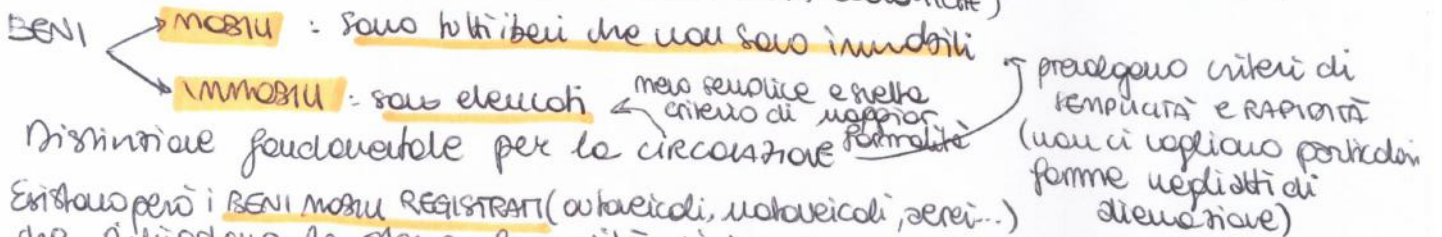 BENI
MOBILI : sono tutti i beni che non sono immobili
IMMOBILI : sono elencati
meno semplice e snella
criterio di maggior
formalità
prevalgono criteri di
SEMPLICITÀ e RAPIDITÀ
(non ci vogliono particolari
forme negli atti di
alienazione)
Distinzione fondamentale per la CIRCOLAZIONE
Esistono però i BENI MOBILI REGISTRATI (autoveicoli, motoveicoli, aerei...)